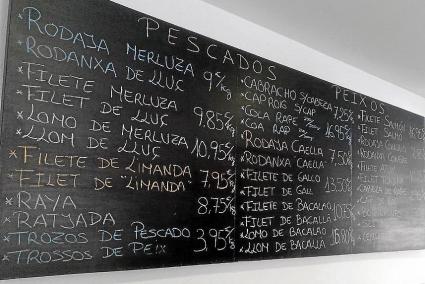 PESCADOS
PEIXOS
*RODAJA MERLUZA 9€/kg
*RODANXA DE LLUÇ
*FILETE MERLUZA
*FILET DE LLUÇ 9,85€/kg
*LOMO DE MERLUZA
*LLOM DE LLUÇ 10,95€/kg
*FILETE DE LIMANDA
*FILET DE "LIMANDA" 7,95€/kg
*RAYA
*RATJADA 8,75€/kg
*TROZOS DE PESCADO
*TROSSOS DE PEIX 3,95€/kg
*CABRACHO S/CABEZA
*CAPROIG S/CAP 7,25%
*COLA RAPE
*COA RAP 16,95%
*RODAJA CAELLA
*RODANXA "CAELLA" 7,50%
*FILETE DE GALLO
*FILET DE GALL 13,50
*FILETE DE BACALAO
*FILET DE BACALLÀ 10,75
*LOMO DE BACALAO
*LLOM DE BACALLÀ 16,90%
*FILETE SALMÓN
*FILET SALMÓ
*RODAJA SALMÓN
*FILETE
*FILET